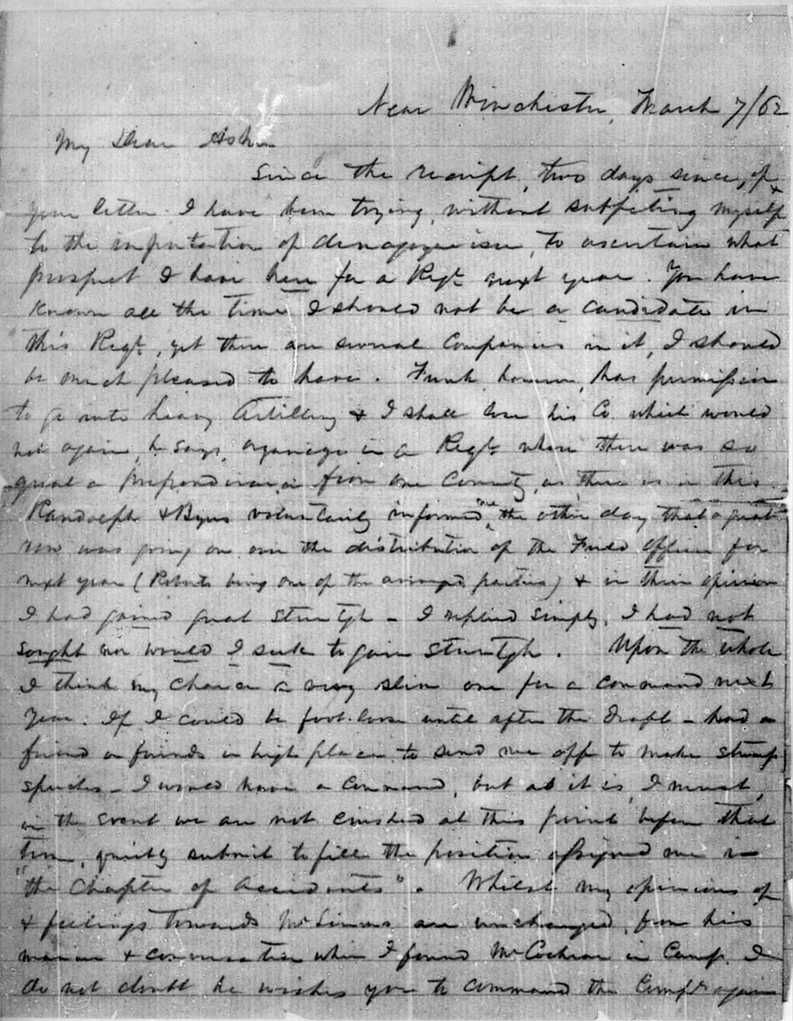 Near Winchester, March 7/62
My Dear Asher
Since the receipt, two days since, of
your letter I have been trying, without subjecting myself
to the imputation of demagogueism, to ascertain what
prospect I have here for a Regt. next year. You have
known all the time I should not be a candidate in
this Regt, yet there are several Companies in it, I should
be much pleased to have. Funk, however, has permission
to go into heavy Artillery & I shall lose his Co. which would
not again, he says, organize in a Regt where there was so
great a preponderance from one County, as there is in this.
Randolph & voluntarily informed me the other day that a great
row was going on over the distribution of the Field Offices for
next year (Roberts being one of the parties) & in their opinion
I had gained great strength - I replied simply, I had not
sought nor would I seek to gain strength. Upon the whole
I think my chance a very slim one for a command next
year. If I could be foot-loose until after the draft - had a
friend or friends in high places to send me off to make stump
speeches - I would have a command, but as it is, I must,
in the event we are not crushed at this point before that
time, quietly submit to fill the position assigned me in
"the Chapter of Accidents". Whilst my opinions of
& feelings towards Mr are unchanged, from his
manner & conversation when I found Mr Cochran in Camp, I
do not doubt he wishes you to command the Comp. again